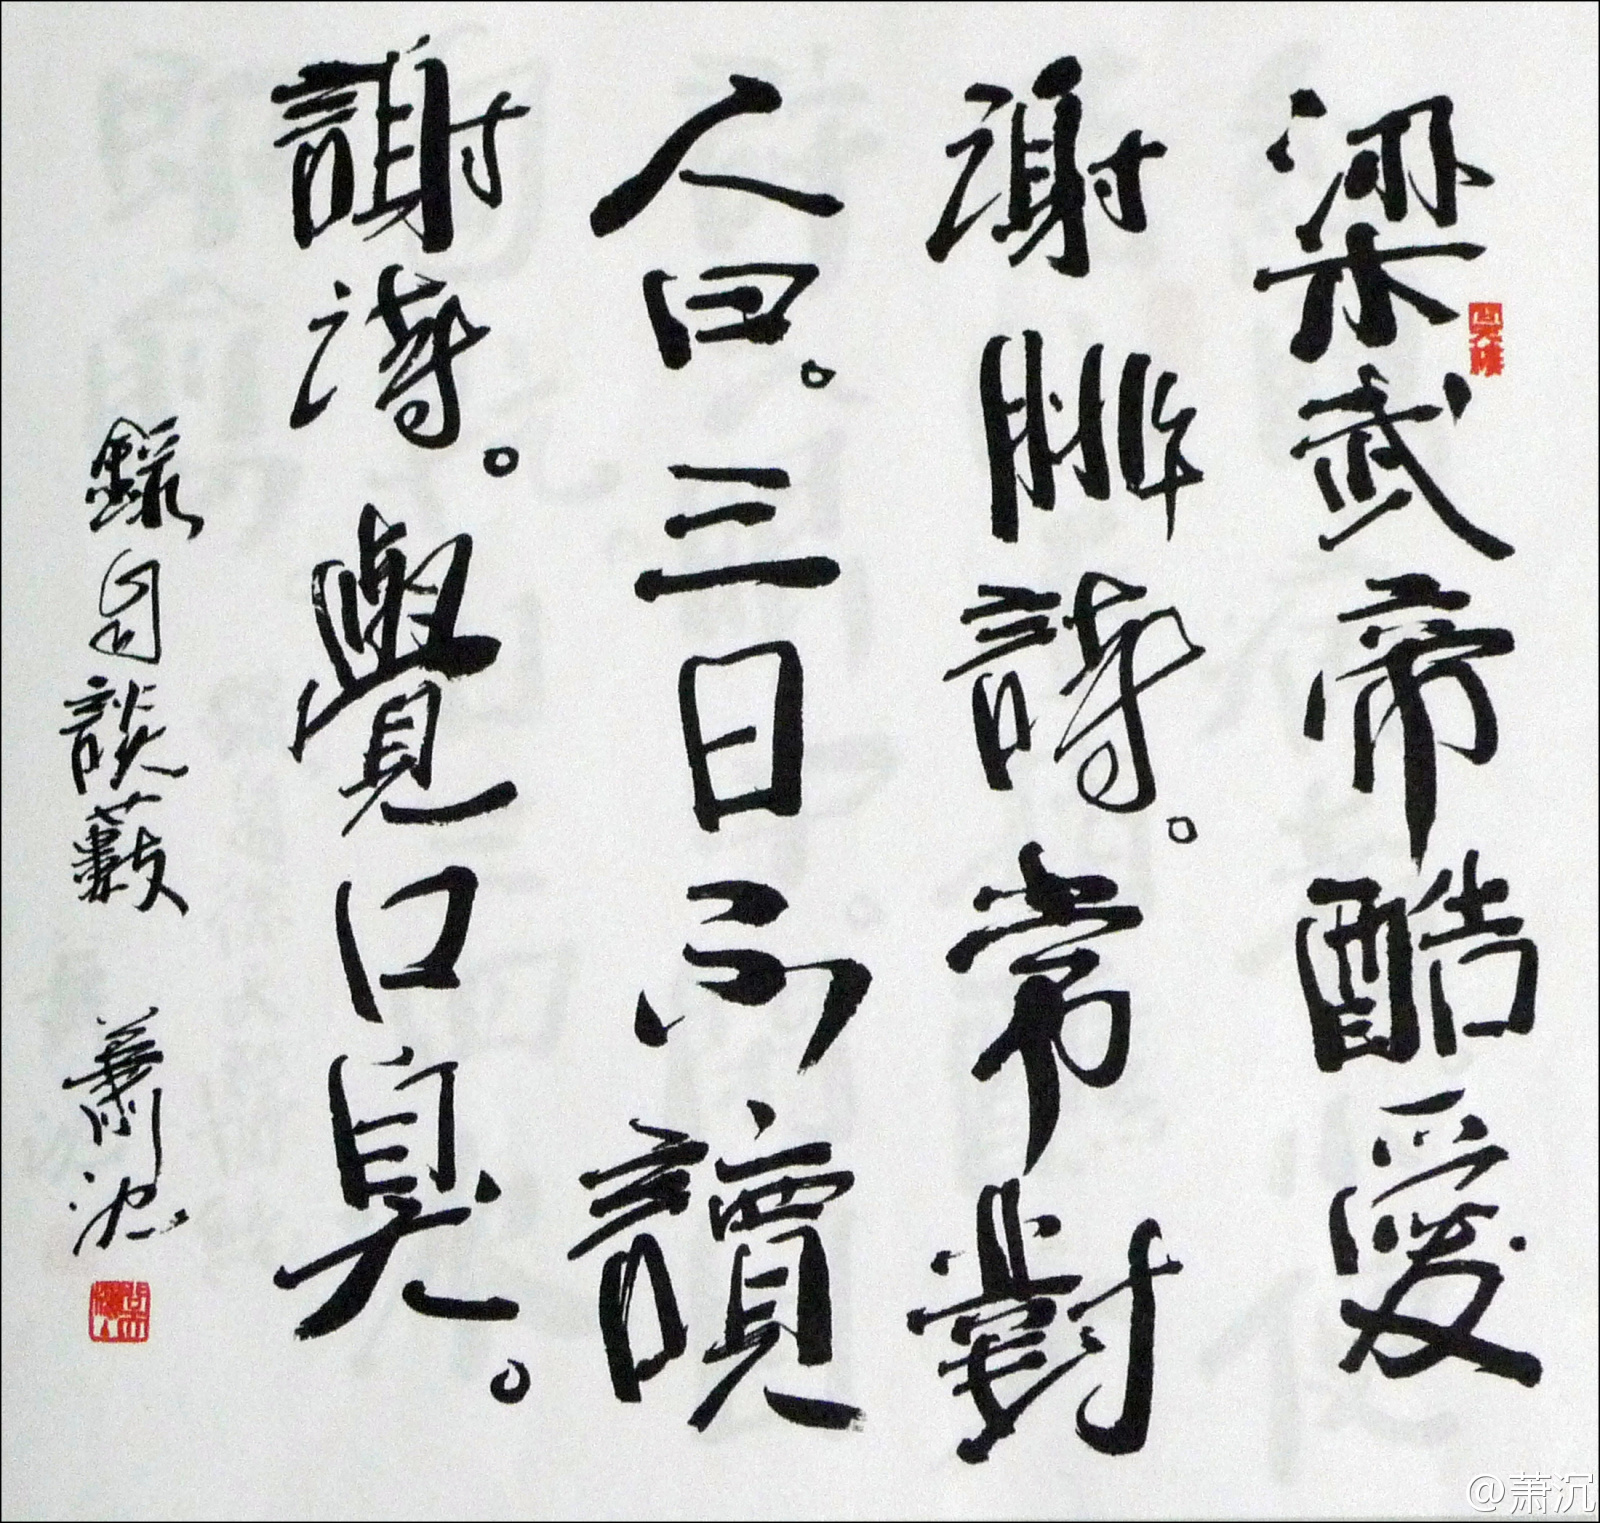 梁武帝酷愛
謝朓詩。常對
人曰。三日不讀
謝詩。覺口臭。
錄自談藪 蕭沉
@萧沉